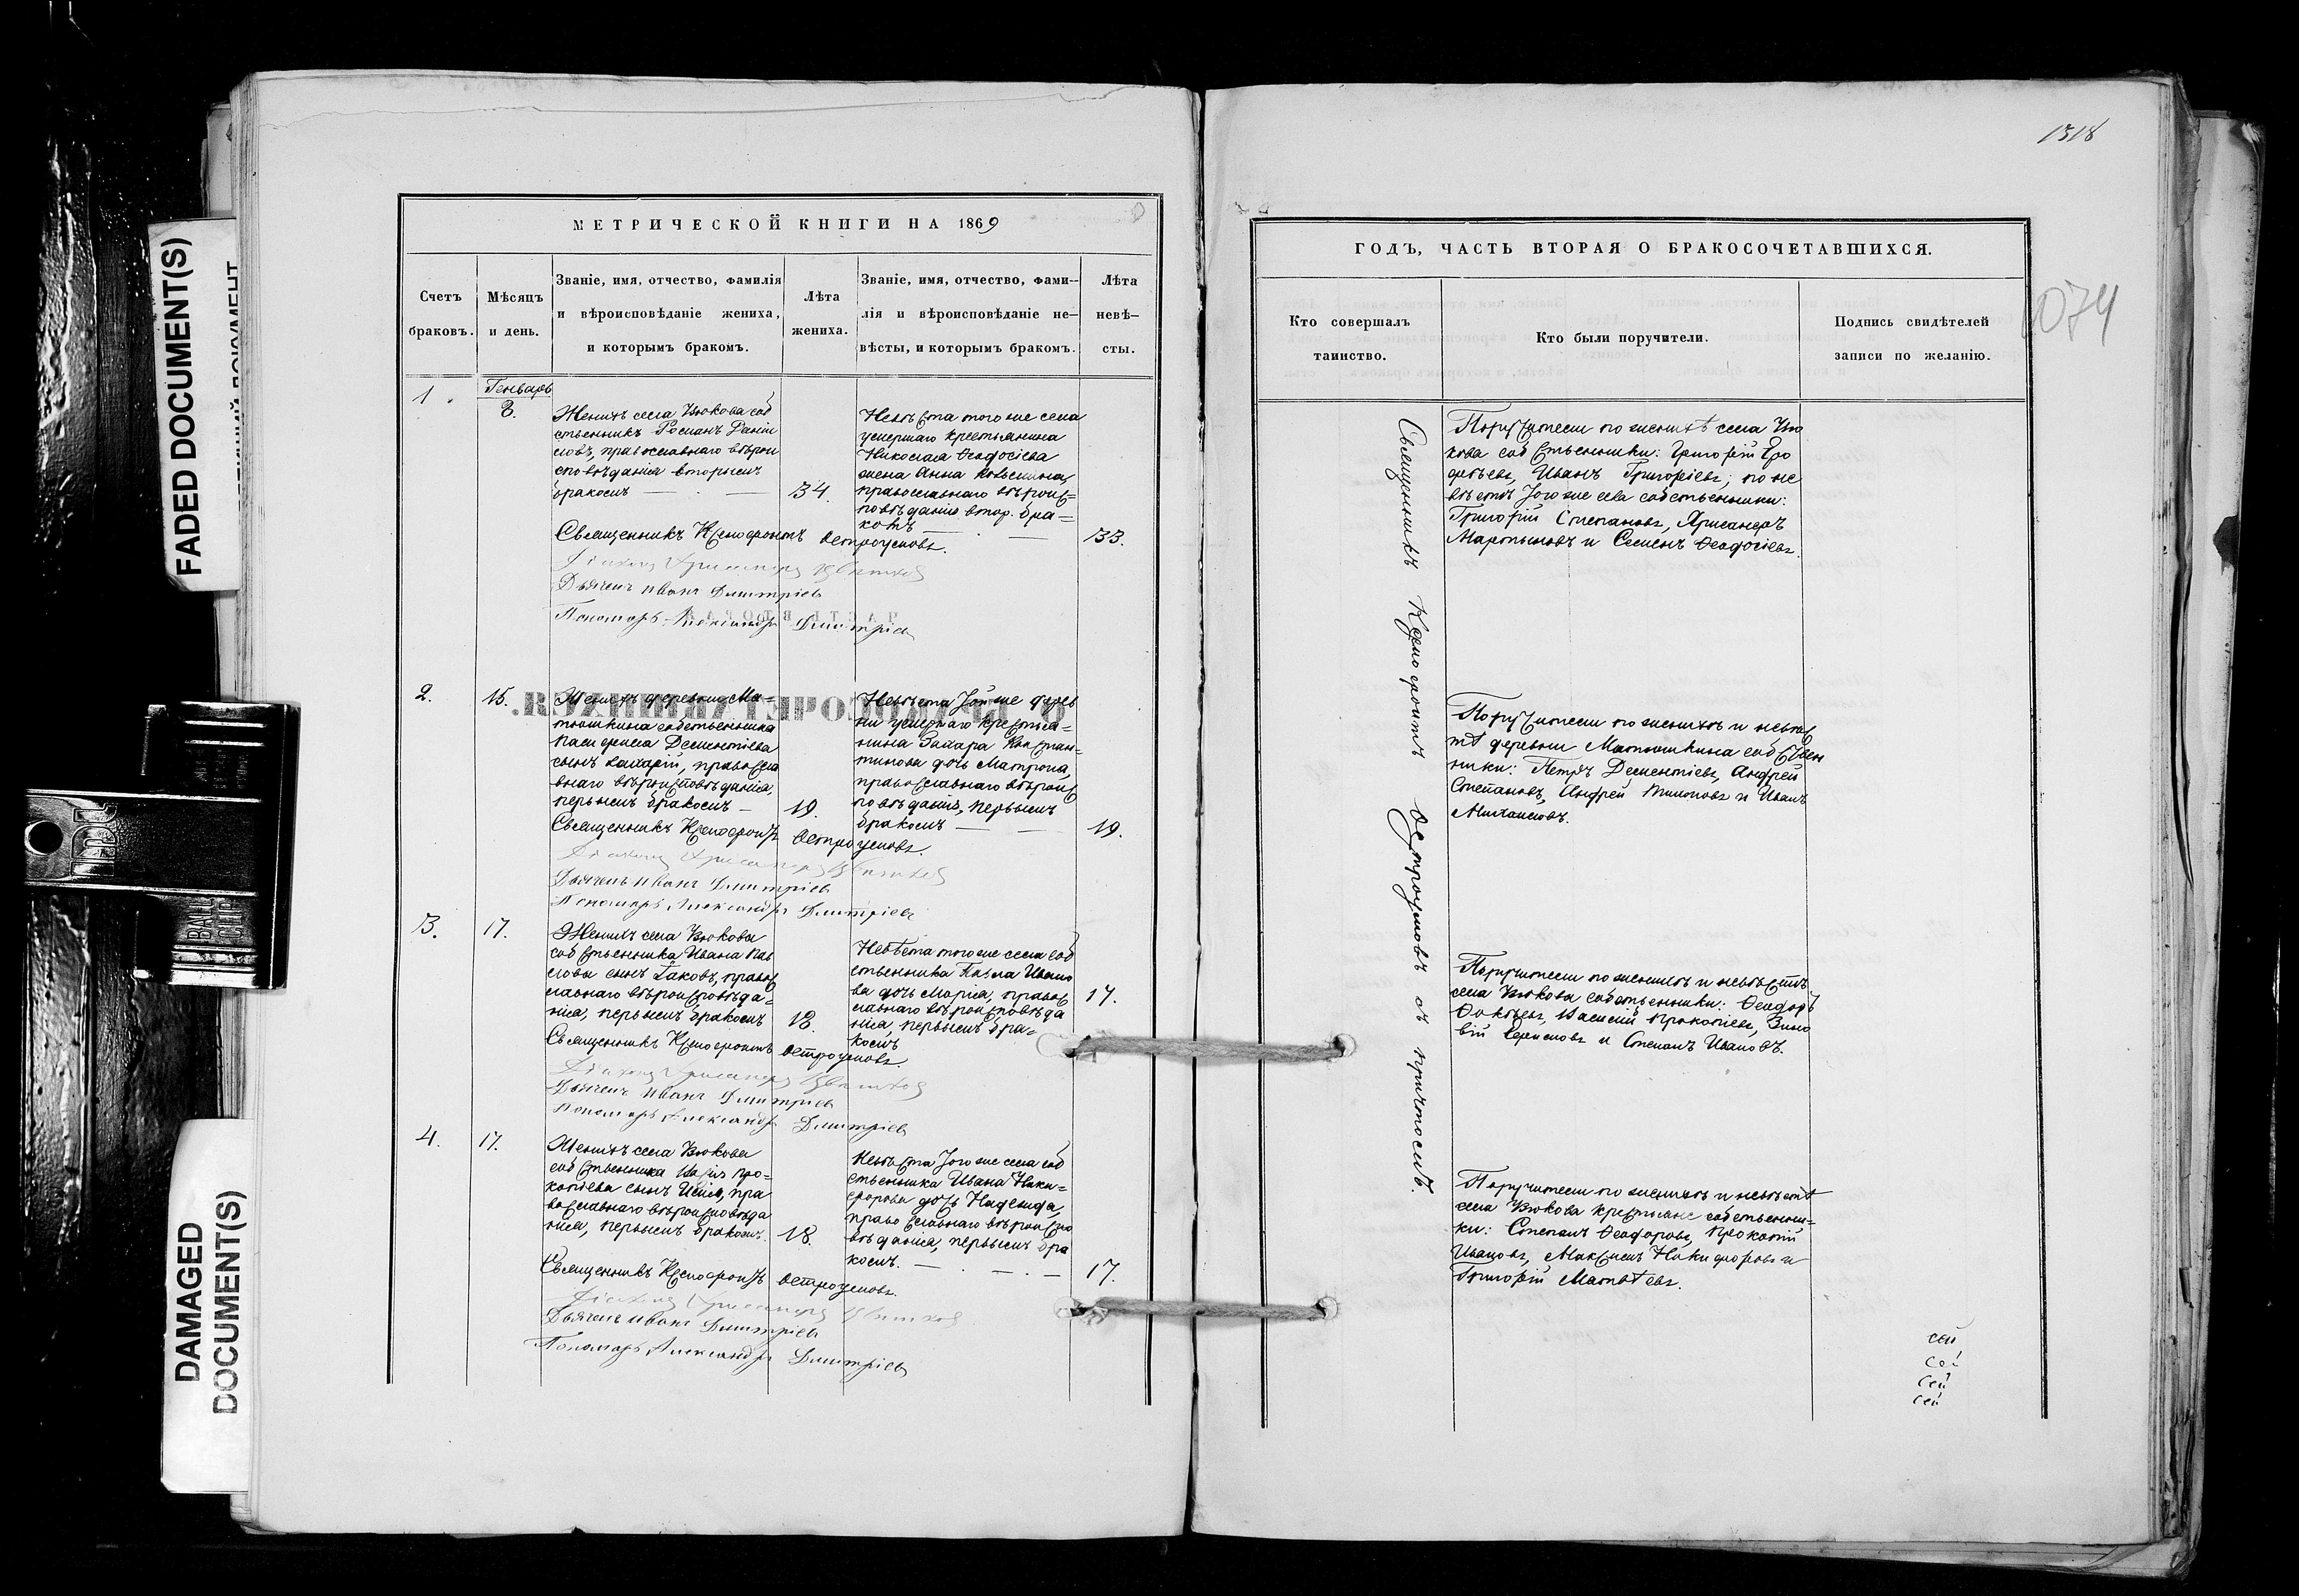 FADED DOCUMENT(S)
DAMAGED
DOCUMENT(S)
BALL
CLIP
МЕТРИЧЕСКОЙ КНИГИ НА 1869
Счетъ
браковъ.
Мѣсяцъ
и день.
Званіе, имя, отчество, фамилія
и вѣроисповѣданіе жениха,
и которымъ бракомъ.
Лѣта
жениха.
Званіе, имя, отчество, фами-
лія и вѣроисповѣданіе не-
вѣсты, и которымъ бракомъ.
Лѣта
невѣ-
сты.
1.
Генваръ
8.
Женихъ села Вьюкова соб
ственникъ Романъ Даніи
ловъ, православнаго вѣрои
сповѣданія вторымъ
бракомъ
34.
Невѣста того же села
умершаго крестьянина
Николая Ѳеодосіева
жена Анна
православнаго вѣроис=
повѣданія втор. бра=
комъ
33.
Священникъ Ксенофонтъ Остроумовъ.
Дьячекъ Иванъ Дмитріевъ
Пономарь Александръ Дмитріевъ
2.
15.
Женихъ деревни Ма=
тюшкина собственника
Дементіева
сынъ Захарій, правосла
внаго вѣроисповѣданія,
первымъ бракомъ
19.
Невѣста той же дерев
ни умершаго крестья=
нина Захара Констан=
тинова дочь Матрона,
православнаго вѣроис
повѣданія, первымъ
бракомъ
19.
Священникъ Ксенофонтъ Остроумовъ.
Дьячекъ Иванъ Дмитріевъ
Пономарь Александръ Дмитріевъ
3.
17.
Женихъ села Вьюкова
собственника Ивана Пав
лова сынъ Іаковъ, правос
лавнаго вѣроисповѣда=
нія, первымъ бракомъ
18.
Невѣста того же села соб
ственника Павла Ивано
ва дочь Марія, правос
лавнаго вѣроисповѣда
нія, первымъ бра=
комъ
17.
Священникъ Ксенофонтъ Остроумовъ.
Дьячекъ Иванъ Дмитріевъ
Пономарь Александръ Дмитріевъ
4.
17.
Женихъ села Вьюкова
собственника Про=
копіева сынъ пра
вославнаго вѣроисповѣда
нія, первымъ бракомъ.
18.
Невѣста того же села соб
ственника Ивана Ники=
форова дочь Надежда,
православнаго вѣроиспо
вѣданія, первымъ бра
комъ.
17.
Священникъ Ксенофонтъ Остроумовъ.
Дьячекъ Иванъ Дмитріевъ
Пономарь Александръ Дмитріевъ
1318
074
ГОДЪ, ЧАСТЬ ВТОРАЯ О БРАКОСОЧЕТАВШИХСЯ.
Кто совершалъ
таинство.
Кто были поручители.
Подпись свидѣтелей
записи по желанію.
Священникъ Ксенофонтъ Остроумовъ съ причтомъ.
Поручители по женихѣ села Вью
кова собственники: Григорій
Иванъ Григоріевъ; по не
вѣстѣ того же села собственники:
Григорій Степановъ,
Мартыновъ и Семенъ Ѳеодосіевъ.
Поручители по женихѣ и невѣс
тѣ деревни Матюшкина собствен
ники: Петръ Дементіевъ, Андрей
Степановъ, Андрей и Иванъ
Михаиловъ.
Поручители по женихѣ и невѣстѣ
села Вьюкова собственники: Ѳеодоръ
Василій Прокопіевъ, Зино
вій и Степанъ Ивановъ.
Поручители по женихѣ и невѣстѣ
села Вьюкова крестьяне собственни=
ки: Степанъ Ѳеодоровъ, Прокопій
Ивановъ, Максимъ Никифоровъ и
Григорій Матвѣевъ.